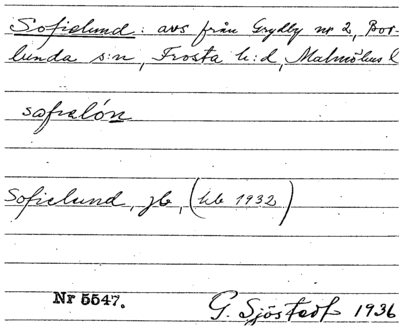 Sofielund: avs från Grydby nr 2, Bor-
lunda s:n, Frosta h:d, Malmöhus l
sofialón
Sofielund, jb, (kb 1932)
Nr 5547.
G. Sjöstedt 1936